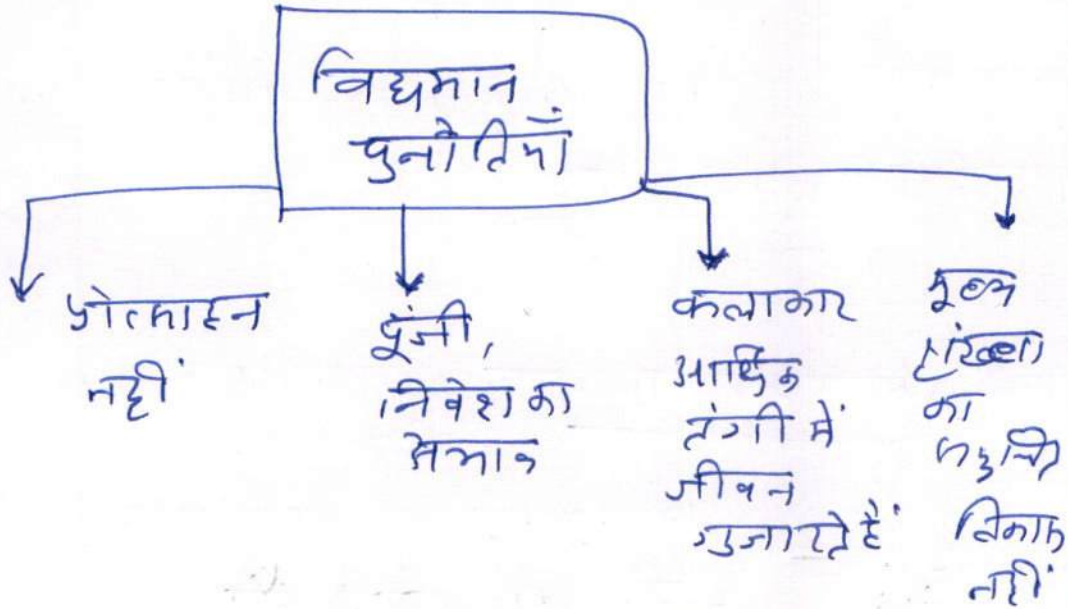 विद्यमान
चुनौतियाँ
प्रोत्साहन
नहीं
पूंजी,
निवेश का
अभाव
कलाकार
आर्थिक
तंगी में
जीवन
गुजारते हैं
मूल्य
श्रृंखला
का
समुचित
विकास
नहीं